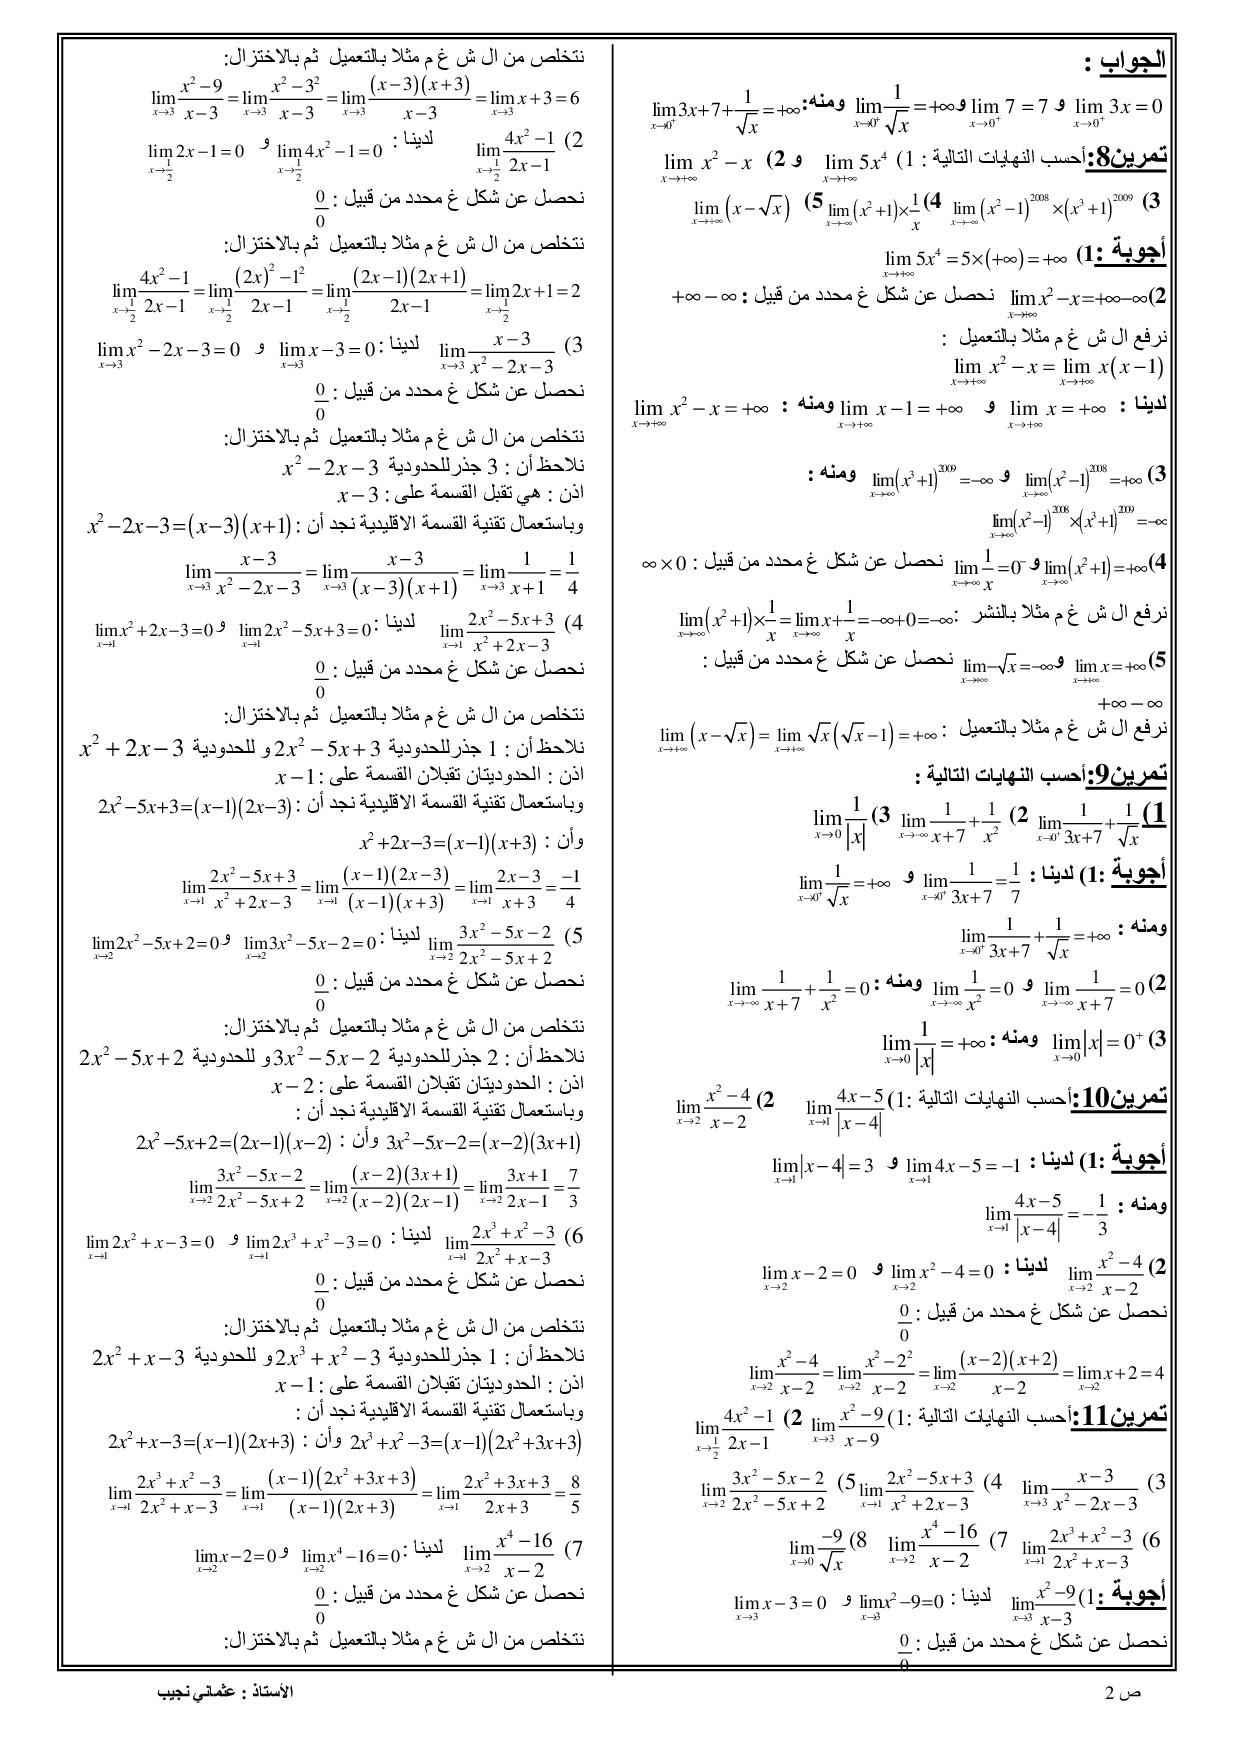 الجواب :
$\lim_{x\to 0^+} 3x = 0$ و $\lim_{x\to 0^+} 7 = 7$ و $\lim_{x\to 0^+} \frac{1}{\sqrt{x}} = +\infty$ ومنه: $\lim_{x\to 0^+} 3x+7+\frac{1}{\sqrt{x}} = +\infty$
تمرين8: أحسب النهايات التالية : 1) $\lim_{x\to +\infty} 5x^4$ و 2) $\lim_{x\to +\infty} x^2 - x$
3) $\lim_{x\to -\infty} (x^2-1)^{2008} \times (x^3+1)^{2009}$ 4) $\lim_{x\to -\infty} (x^2+1)\times\frac{1}{x}$ 5) $\lim_{x\to +\infty} (x-\sqrt{x})$
أجوبة :1) $\lim_{x\to +\infty} 5x^4 = 5\times(+\infty) = +\infty$
2) $\lim_{x\to +\infty} x^2 - x = +\infty - \infty$ نحصل عن شكل غ محدد من قبيل : $+\infty - \infty$
نرفع ال ش غ م مثلا بالتعميل :
$\lim_{x\to +\infty} x^2 - x = \lim_{x\to +\infty} x(x-1)$
لدينا : $\lim_{x\to +\infty} x = +\infty$ و $\lim_{x\to +\infty} x-1 = +\infty$ ومنه : $\lim_{x\to +\infty} x^2 - x = +\infty$
3) $\lim_{x\to -\infty} (x^2-1)^{2008} = +\infty$ و $\lim_{x\to -\infty} (x^3+1)^{2009} = -\infty$ ومنه :
$\lim_{x\to -\infty} (x^2-1)^{2008} \times (x^3+1)^{2009} = -\infty$
4) $\lim_{x\to -\infty} (x^2+1) = +\infty$ و $\lim_{x\to -\infty} \frac{1}{x} = 0^-$ نحصل عن شكل غ محدد من قبيل : $\infty \times 0$
نرفع ال ش غ م مثلا بالنشر : $\lim_{x\to -\infty} (x^2+1)\times\frac{1}{x} = \lim_{x\to -\infty} x+\frac{1}{x} = -\infty+0 = -\infty$
5) $\lim_{x\to +\infty} x = +\infty$ و $\lim_{x\to +\infty} -\sqrt{x} = -\infty$ نحصل عن شكل غ محدد من قبيل :
$+\infty - \infty$
نرفع ال ش غ م مثلا بالتعميل : $\lim_{x\to +\infty} (x-\sqrt{x}) = \lim_{x\to +\infty} \sqrt{x}(\sqrt{x}-1) = +\infty$
تمرين9: أحسب النهايات التالية :
1) $\lim_{x\to 0^+} \frac{1}{3x+7}+\frac{1}{\sqrt{x}}$ 2) $\lim_{x\to -\infty} \frac{1}{x+7}+\frac{1}{x^2}$ 3) $\lim_{x\to 0} \frac{1}{|x|}$
أجوبة :1) لدينا : $\lim_{x\to 0^+} \frac{1}{3x+7} = \frac{1}{7}$ و $\lim_{x\to 0^+} \frac{1}{\sqrt{x}} = +\infty$
ومنه : $\lim_{x\to 0^+} \frac{1}{3x+7}+\frac{1}{\sqrt{x}} = +\infty$
2) $\lim_{x\to -\infty} \frac{1}{x+7} = 0$ و $\lim_{x\to -\infty} \frac{1}{x^2} = 0$ ومنه : $\lim_{x\to -\infty} \frac{1}{x+7}+\frac{1}{x^2} = 0$
3) $\lim_{x\to 0} |x| = 0^+$ ومنه : $\lim_{x\to 0} \frac{1}{|x|} = +\infty$
تمرين10: أحسب النهايات التالية :1) $\lim_{x\to 1} \frac{4x-5}{|x-4|}$ 2) $\lim_{x\to 2} \frac{x^2-4}{x-2}$
أجوبة :1) لدينا : $\lim_{x\to 1} 4x-5 = -1$ و $\lim_{x\to 1} |x-4| = 3$
ومنه : $\lim_{x\to 1} \frac{4x-5}{|x-4|} = -\frac{1}{3}$
2) $\lim_{x\to 2} \frac{x^2-4}{x-2}$ لدينا : $\lim_{x\to 2} x^2-4 = 0$ و $\lim_{x\to 2} x-2 = 0$
نحصل عن شكل غ محدد من قبيل : $\frac{0}{0}$
$\lim_{x\to 2} \frac{x^2-4}{x-2} = \lim_{x\to 2} \frac{x^2-2^2}{x-2} = \lim_{x\to 2} \frac{(x-2)(x+2)}{x-2} = \lim_{x\to 2} x+2 = 4$
تمرين11: أحسب النهايات التالية :1) $\lim_{x\to 3} \frac{x^2-9}{x-9}$ 2) $\lim_{x\to \frac{1}{2}} \frac{4x^2-1}{2x-1}$
3) $\lim_{x\to 3} \frac{x-3}{x^2-2x-3}$ 4) $\lim_{x\to 1} \frac{2x^2-5x+3}{x^2+2x-3}$ 5) $\lim_{x\to 2} \frac{3x^2-5x-2}{2x^2-5x+2}$
6) $\lim_{x\to 1} \frac{2x^3+x^2-3}{2x^2+x-3}$ 7) $\lim_{x\to 2} \frac{x^4-16}{x-2}$ 8) $\lim_{x\to 0} \frac{-9}{\sqrt{x}}$
أجوبة :1) $\lim_{x\to 3} \frac{x^2-9}{x-3}$ لدينا : $\lim_{x\to 3} x^2-9 = 0$ و $\lim_{x\to 3} x-3 = 0$
نحصل عن شكل غ محدد من قبيل : $\frac{0}{0}$
نتخلص من ال ش غ م مثلا بالتعميل ثم بالاختزال:
$\lim_{x\to 3} \frac{x^2-9}{x-3} = \lim_{x\to 3} \frac{x^2-3^2}{x-3} = \lim_{x\to 3} \frac{(x-3)(x+3)}{x-3} = \lim_{x\to 3} x+3 = 6$
2) $\lim_{x\to \frac{1}{2}} \frac{4x^2-1}{2x-1}$ لدينا : $\lim_{x\to \frac{1}{2}} 4x^2-1 = 0$ و $\lim_{x\to \frac{1}{2}} 2x-1 = 0$
نحصل عن شكل غ محدد من قبيل : $\frac{0}{0}$
نتخلص من ال ش غ م مثلا بالتعميل ثم بالاختزال:
$\lim_{x\to \frac{1}{2}} \frac{4x^2-1}{2x-1} = \lim_{x\to \frac{1}{2}} \frac{(2x)^2-1^2}{2x-1} = \lim_{x\to \frac{1}{2}} \frac{(2x-1)(2x+1)}{2x-1} = \lim_{x\to \frac{1}{2}} 2x+1 = 2$
3) $\lim_{x\to 3} \frac{x-3}{x^2-2x-3}$ لدينا : $\lim_{x\to 3} x-3 = 0$ و $\lim_{x\to 3} x^2-2x-3 = 0$
نحصل عن شكل غ محدد من قبيل : $\frac{0}{0}$
نتخلص من ال ش غ م مثلا بالتعميل ثم بالاختزال:
نلاحظ أن : 3 جذر للحدودية $x^2-2x-3$
اذن : هي تقبل القسمة على : $x-3$
وباستعمال تقنية القسمة الاقليدية نجد أن : $x^2-2x-3=(x-3)(x+1)$
$\lim_{x\to 3} \frac{x-3}{x^2-2x-3} = \lim_{x\to 3} \frac{x-3}{(x-3)(x+1)} = \lim_{x\to 3} \frac{1}{x+1} = \frac{1}{4}$
4) $\lim_{x\to 1} \frac{2x^2-5x+3}{x^2+2x-3}$ لدينا : $\lim_{x\to 1} 2x^2-5x+3 = 0$ و $\lim_{x\to 1} x^2+2x-3 = 0$
نحصل عن شكل غ محدد من قبيل : $\frac{0}{0}$
نتخلص من ال ش غ م مثلا بالتعميل ثم بالاختزال:
نلاحظ أن : 1 جذر للحدودية $2x^2-5x+3$ و للحدودية $x^2+2x-3$
اذن : الحدوديتان تقبلان القسمة على : $x-1$
وباستعمال تقنية القسمة الاقليدية نجد أن : $2x^2-5x+3=(x-1)(2x-3)$
وأن : $x^2+2x-3=(x-1)(x+3)$
$\lim_{x\to 1} \frac{2x^2-5x+3}{x^2+2x-3} = \lim_{x\to 1} \frac{(x-1)(2x-3)}{(x-1)(x+3)} = \lim_{x\to 1} \frac{2x-3}{x+3} = \frac{-1}{4}$
5) $\lim_{x\to 2} \frac{3x^2-5x-2}{2x^2-5x+2}$ لدينا : $\lim_{x\to 2} 3x^2-5x-2 = 0$ و $\lim_{x\to 2} 2x^2-5x+2 = 0$
نحصل عن شكل غ محدد من قبيل : $\frac{0}{0}$
نتخلص من ال ش غ م مثلا بالتعميل ثم بالاختزال:
نلاحظ أن : 2 جذر للحدودية $3x^2-5x-2$ و للحدودية $2x^2-5x+2$
اذن : الحدوديتان تقبلان القسمة على : $x-2$
وباستعمال تقنية القسمة الاقليدية نجد أن :
$3x^2-5x-2=(x-2)(3x+1)$ وأن : $2x^2-5x+2=(2x-1)(x-2)$
$\lim_{x\to 2} \frac{3x^2-5x-2}{2x^2-5x+2} = \lim_{x\to 2} \frac{(x-2)(3x+1)}{(x-2)(2x-1)} = \lim_{x\to 2} \frac{3x+1}{2x-1} = \frac{7}{3}$
6) $\lim_{x\to 1} \frac{2x^3+x^2-3}{2x^2+x-3}$ لدينا : $\lim_{x\to 1} 2x^3+x^2-3 = 0$ و $\lim_{x\to 1} 2x^2+x-3 = 0$
نحصل عن شكل غ محدد من قبيل : $\frac{0}{0}$
نتخلص من ال ش غ م مثلا بالتعميل ثم بالاختزال:
نلاحظ أن : 1 جذر للحدودية $2x^3+x^2-3$ و للحدودية $2x^2+x-3$
اذن : الحدوديتان تقبلان القسمة على : $x-1$
وباستعمال تقنية القسمة الاقليدية نجد أن :
$2x^3+x^2-3=(x-1)(2x^2+3x+3)$ وأن : $2x^2+x-3=(x-1)(2x+3)$
$\lim_{x\to 1} \frac{2x^3+x^2-3}{2x^2+x-3} = \lim_{x\to 1} \frac{(x-1)(2x^2+3x+3)}{(x-1)(2x+3)} = \lim_{x\to 1} \frac{2x^2+3x+3}{2x+3} = \frac{8}{5}$
7) $\lim_{x\to 2} \frac{x^4-16}{x-2}$ لدينا : $\lim_{x\to 2} x^4-16 = 0$ و $\lim_{x\to 2} x-2 = 0$
نحصل عن شكل غ محدد من قبيل : $\frac{0}{0}$
نتخلص من ال ش غ م مثلا بالتعميل ثم بالاختزال:
ص 2
الأستاذ : عثماني نجيب